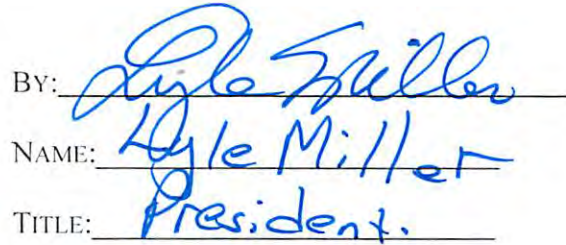 BY: Lyle Miller
NAME: Lyle Miller
TITLE: President.